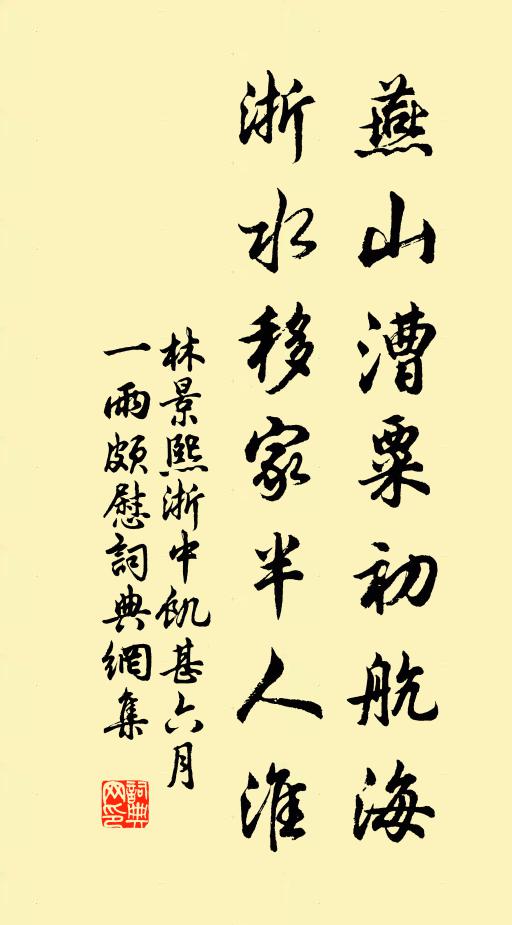 燕山漕粟初航海
浙水移家半人淮
林景熙浙中飢甚六月
一雨頗慰詞典網集
詞典
网印